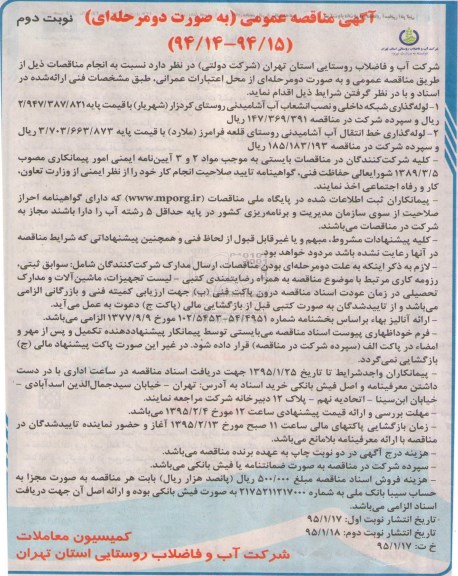 آگهی مناقصه عمومی (به صورت دومرحله‌ای)
نوبت دوم
(۹۴/۱۴-۹۴/۱۵)
شرکت آب و فاضلاب روستایی استان تهران (شرکت دولتی) در نظر دارد نسبت به انجام مناقصات ذیل از
طریق مناقصه عمومی و به صورت دومرحله‌ای از محل اعتبارات عمرانی، طبق مشخصات فنی ارائه‌شده در
اسناد و با در نظر گرفتن شرایط ذیل اقدام نماید.
۱- لوله‌گذاری شبکه داخلی و نصب انشعاب آب آشامیدنی روستای کردزار (شهریار) با قیمت پایه ۲/۹۴۷/۳۸۷/۸۲۱
ریال و سپرده شرکت در مناقصه ۱۴۷/۳۶۹/۳۹۱ ریال
۲- لوله‌گذاری خط انتقال آب آشامیدنی روستای قلعه فرامرز (ملارد) با قیمت پایه ۳/۷۰۳/۶۶۳/۸۷۳ ریال
و سپرده شرکت در مناقصه ۱۸۵/۱۸۳/۱۹۳ ریال
- کلیه شرکت‌کنندگان در مناقصات بایستی به موجب مواد ۲ و ۳ آیین‌نامه ایمنی امور پیمانکاری مصوب
۱۳۸۹/۳/۵ شورایعالی حفاظت فنی، گواهینامه تایید صلاحیت انجام کار خود را از نظر ایمنی از وزارت تعاون،
کار و رفاه اجتماعی اخذ نمایند.
- پیمانکاران ثبت اطلاعات شده در پایگاه ملی مناقصات (www.mporg.ir) که دارای گواهینامه احراز
صلاحیت از سوی سازمان مدیریت و برنامه‌ریزی کشور در پایه حداقل ۵ رشته آب را دارا باشند مجاز به
شرکت در مناقصات می‌باشند.
- کلیه پیشنهادات مشروط، مبهم و یا غیرقابل قبول از لحاظ فنی و همچنین پیشنهاداتی که شرایط مناقصه
در آنها رعایت نشده باشد مردود خواهد بود.
- لازم به ذکر اینکه به علت دومرحله‌ای بودن مناقصات، ارسال مدارک شرکت‌کنندگان شامل: سوابق ثبتی،
رزومه کاری مرتبط با موضوع مناقصه به همراه رضایتمندی کتبی - لیست تجهیزات، ماشین‌آلات و مدارک
تحصیلی در زمان عودت اسناد مناقصه درون پاکت فنی (ب) جهت ارزیابی کمیته فنی و بازرگانی الزامی
می‌باشد و از تاییدشدگان به صورت کتبی قبل از بازگشایی مالی (پاکت ج) دعوت به عمل می‌آید.
- ارائه آنالیز بهاء براساس بخشنامه شماره ۱۰۲/۵۴۵۳-۵۴/۴۹۵۱ مورخ ۱۳۷۷/۹/۹ الزامی می‌باشد.
- فرم خوداظهاری پیوست اسناد مناقصه می‌بایستی توسط پیمانکار پیشنهاددهنده تکمیل و پس از مهر و
امضاء در پاکت الف (سپرده شرکت در مناقصه) قرار داده شود. در غیر این صورت پاکت پیشنهاد مالی (ج)
بازگشایی نمی‌گردد.
- پیمانکاران واجدشرایط تا تاریخ ۱۳۹۵/۱/۲۵ جهت دریافت اسناد مناقصه در ساعت اداری با در دست
داشتن معرفینامه و اصل فیش بانکی خرید اسناد به آدرس: تهران - خیابان سیدجمال‌الدین اسدآبادی -
خیابان ابن‌سینا - اتحادیه نهم - پلاک ۱۲ دبیرخانه شرکت مراجعه نمایند.
- مهلت بررسی و ارائه قیمت پیشنهادی ساعت ۱۲ مورخ ۱۳۹۵/۲/۴ می‌باشد.
- زمان بازگشایی پاکتهای مالی ساعت ۱۱ صبح مورخ ۱۳۹۵/۲/۱۳ آغاز و حضور نماینده تاییدشدگان در
مناقصه با ارائه معرفینامه بلامانع می‌باشد.
- هزینه درج آگهی در دو نوبت چاپ به عهده برنده مناقصه می‌باشد.
- سپرده شرکت در مناقصه به صورت ضمانتنامه یا فیش بانکی می‌باشد.
- هزینه فروش اسناد مناقصه مبلغ ۵۰۰/۰۰۰ ریال (پانصد هزار ریال) بابت هر مناقصه به صورت مجزا به
حساب سیبا بانک ملی به شماره ۲۱۷۵۲۱۱۲۱۷۰۰۰ به صورت فیش بانکی بوده و ارائه اصل آن جهت دریافت
اسناد الزامی می‌باشد.
تاریخ انتشار نوبت اول: ۹۵/۱/۱۷
تاریخ انتشار نوبت دوم: ۹۵/۱/۱۸
خ ت: ۹۵/۱/۱۷
کمیسیون معاملات
شرکت آب و فاضلاب روستایی استان تهران